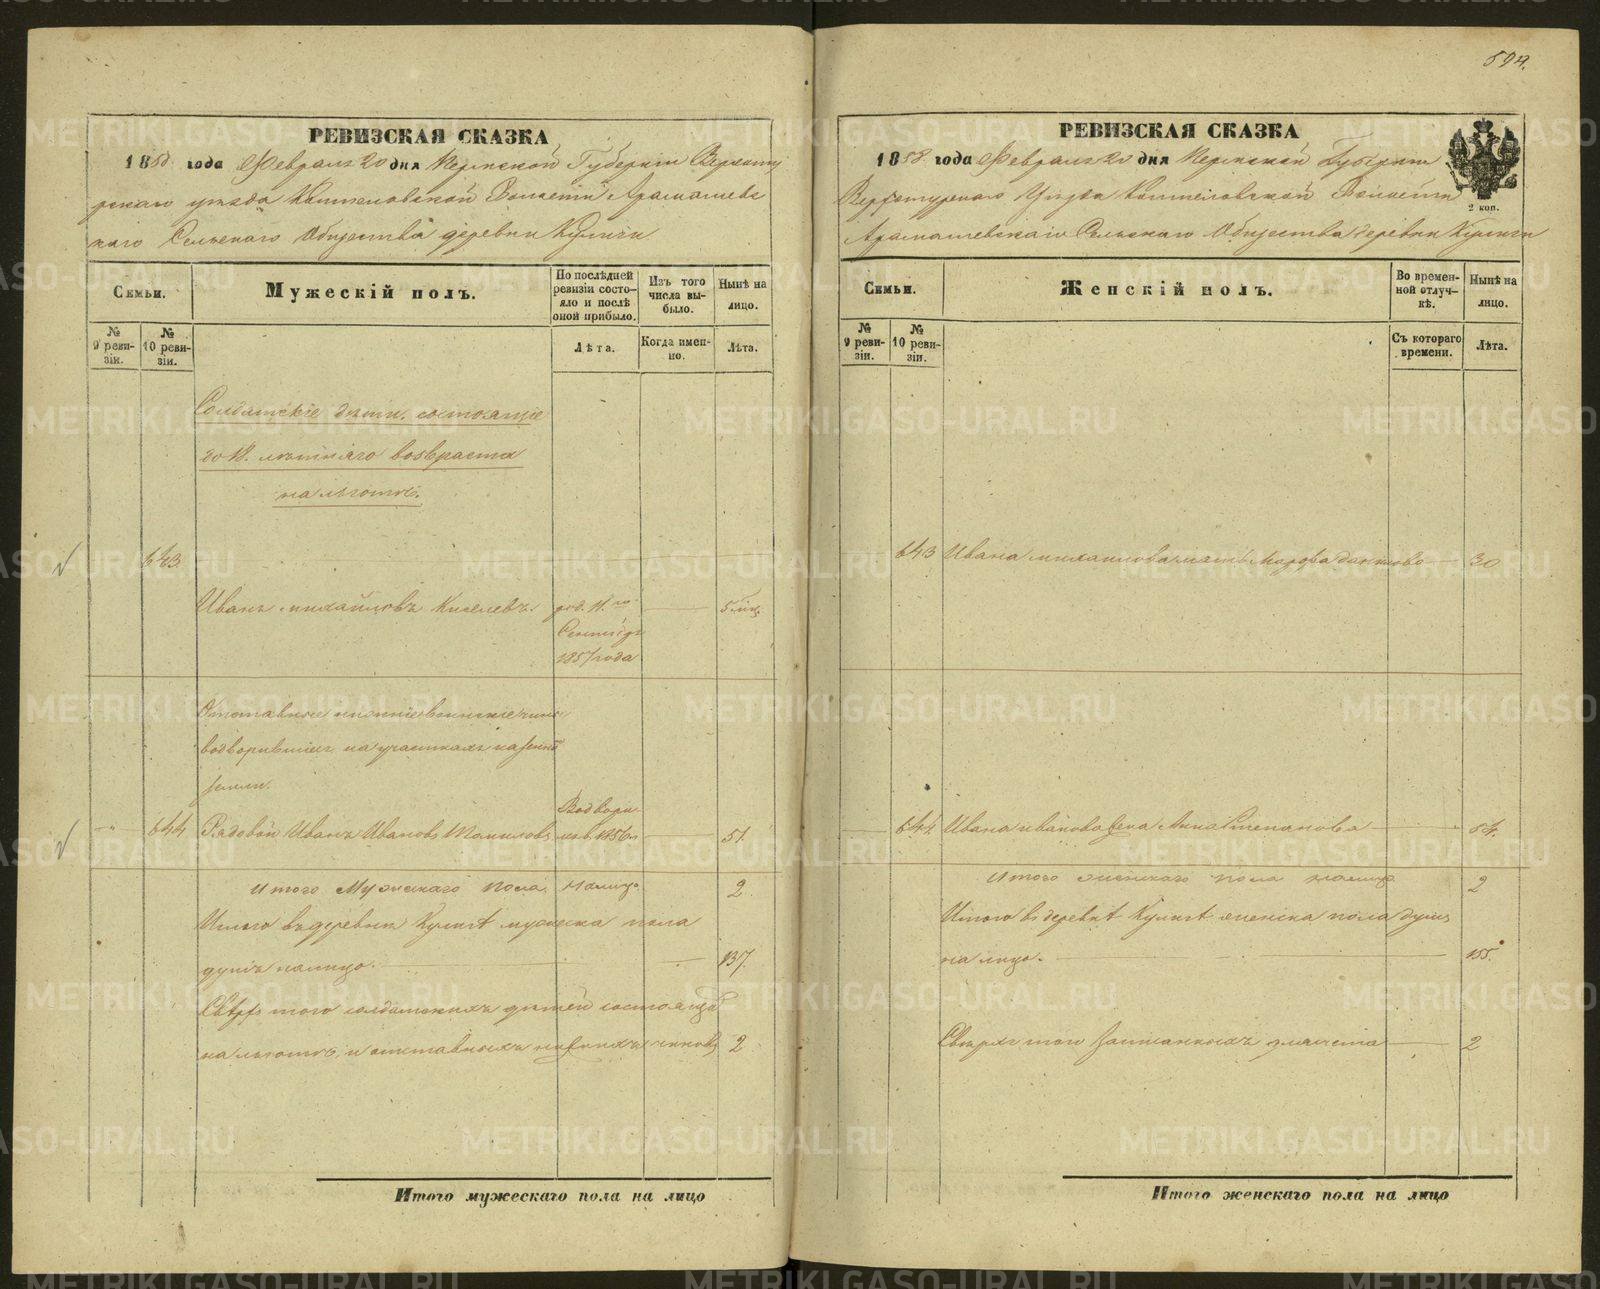 594.
РЕВИЗСКАЯ СКАЗКА
1858 года Февраля 20 дня Пермской Губерніи Верхоту
рскаго уѣзда Коптеловской Волости Арамашевс
каго Сельскаго Общества деревни Кулиги
Семьи.
Мужескій полъ.
По послѣдней ревизіи состояло и послѣ оной прибыло.
Изъ того числа выбыло.
Нынѣ на лицо.
№ 9 ревизіи.
№ 10 ревизіи.
Лѣта.
Когда именно.
Лѣта.
Солдатскіе дѣти, состоящіе
до 18. лѣтняго возвраста
на льготѣ.
643
Иванъ Михайловъ Киселевъ.
род. 11.го
Сентябр
1857 года
5 мѣц.
Отставные нижніе воинскіе чины
водворившіяся на участкахъ казенной
земли.
644 Рядовой Иванъ Ивановъ Томиловъ
Водвори
въ 1856
51.
Итого Мужескаго пола на лицо 2
Итого въ деревнѣ Кулигѣ мужеска пола
душъ на лицо. 137.
Сверхъ того солдатскихъ дѣтей состоящіе
на льготѣ, и отставныхъ нижнихъ чиновъ 2
Итого мужескаго пола на лицо
РЕВИЗСКАЯ СКАЗКА
1858 года Февраля 20 дня Пермской Губерніи
Верхотурскаго Уѣзда Коптеловской Волости
Арамашевскаго Сельскаго Общества деревни Кулиги
2 коп.
Семьи.
Женскій полъ.
Во временной отлучкѣ.
Нынѣ на лицо.
№ 9 ревизіи.
№ 10 ревизіи.
Съ котораго времени.
Лѣта.
643 Ивана Михаилова мать 30
644 Ивана Иванова жена Анна Степанова 54.
Итого женскаго пола на лицо 2
Итого въ деревнѣ Кулигѣ женска пола душъ
на лицо. 155.
Сверхъ того 2
Итого женскаго пола на лицо
METRIKI.GASO-URAL.RU